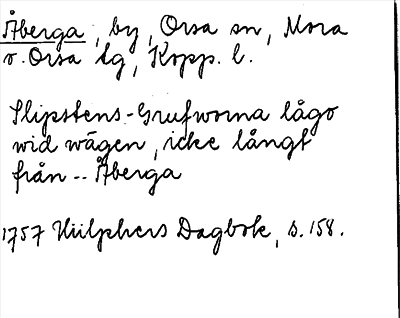 Åberga, by, Orsa sn, Mora
o. Orsa tg, Kopp. l.
Slipstens-Grufworna lågo
wid wägen, icke långt
från -- Åberga
1757 Hülphers Dagbok, s. 158.